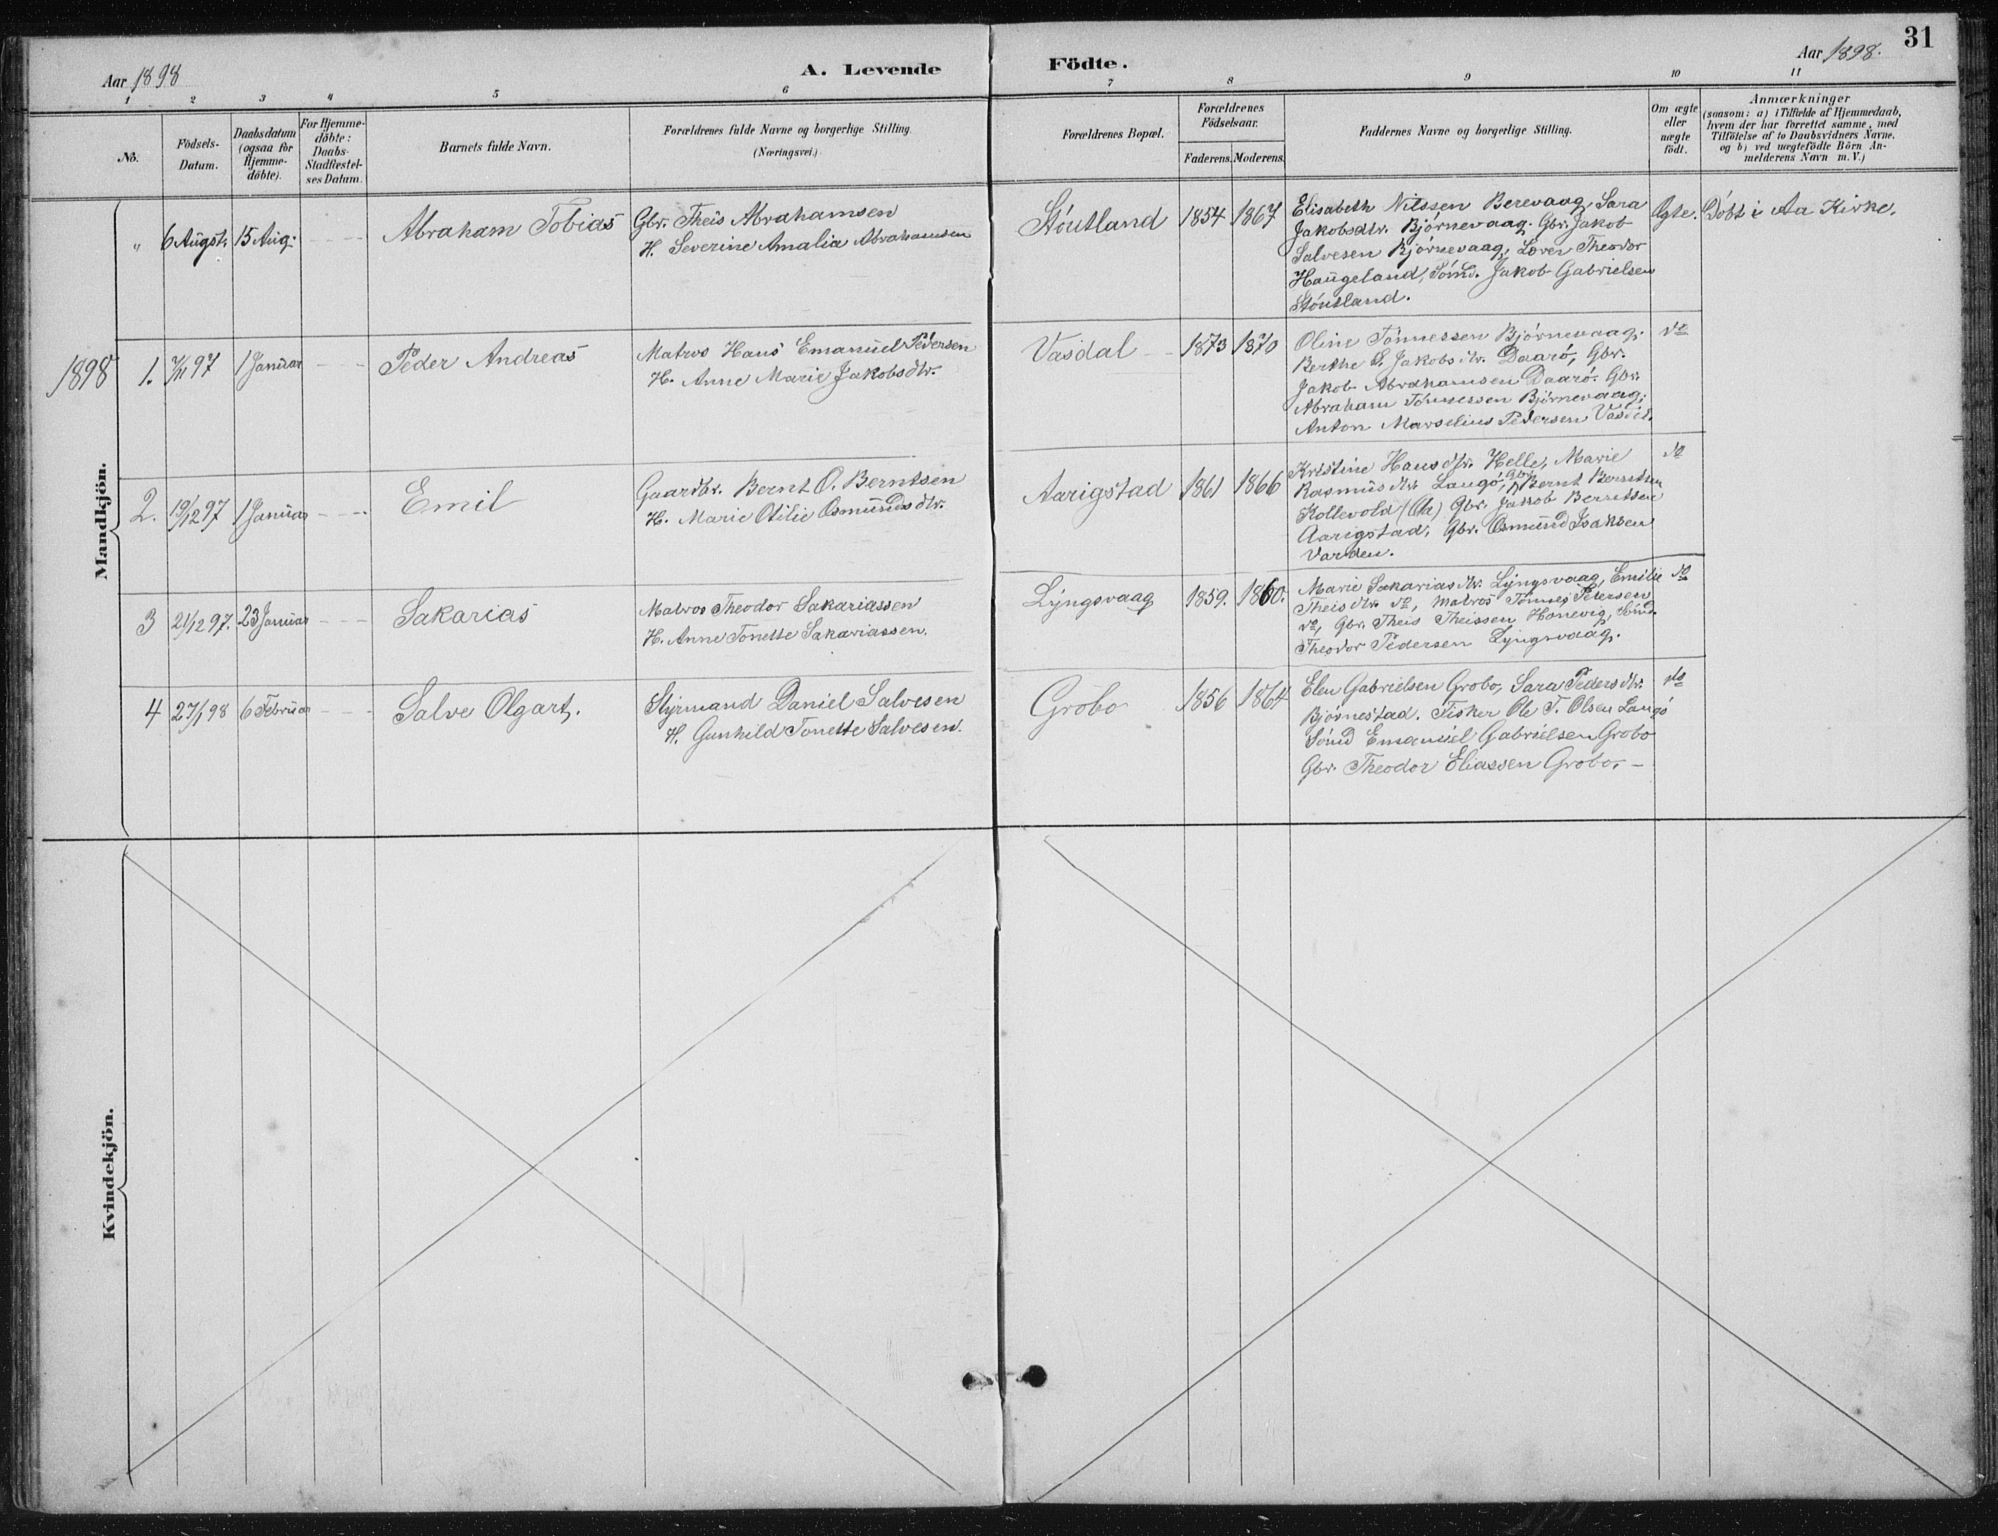 31
Aar 1898
A. Levende
Födte.
Aar 1898.
1 2 3 4 5 6 7 8 9 10 11
No.
Födsels-
Datum.
Daabsdatum
(ogsaa for
Hjemme-
döbte).
For Hjemme-
döbte:
Daabs-
Stadfæstel-
ses Datum.
Barnets fulde Navn.
Forældrenes fulde Navne og borgerlige Stilling.
(Næringsvei.)
Forældrenes Bopæl.
Forældrenes
Födselsaar.
Faderens. Moderens.
Faddernes Navne og borgerlige Stilling.
Om ægte
eller
uægte
født.
Anmærkninger
(saasom: a) i Tilfælde af Hjemmedaab,
hvem der har forrettet samme, med
Tilföielse af to Daabsvidners Navne,
og b) ved uægtefödte Börn An-
melderens Navn m. V.)
Mandkjön.
" 6 Augst. 15 Aug.
Abraham Tobias
Gbr. Theis Abrahamsen
H. Severine Amalia Abrahamsen
Støutland
1854 1867
Elisabeth Nilssen Berevaag, Sara
Jakobsdtr. Bjørnevaag. Gbr. Jakob
Salvesen Bjørnevaag, Lærer Theodor
Haugeland, Sønd. Jakob Gabrielsen
Støutland.
Ægte.
Døbt i Aa Kirke.
1898
1. 7/11 97 1 Januar
Peder Andreas
Matros Hans Emanuel Pedersen
H. Anne Marie Jakobsdtr.
Vasdal
1873 1870
Oline Tønnessen Bjørnevaag.
Berthe S. Jakobsdtr. Daarø, Gbr.
Jakob Abrahamsen Daarø. Gbr.
Abraham Tønnessen Bjørnevaag.
Anton Marselius Pedersen Vasdl.
do
2. 19/12 97 1 Januar
Emil
Gaardbr. Bernt O. Berntsen
H. Marie Otilie Osmundsdtr.
Aarigstad
1861 1866
Kristine Hansdtr. Helle, Marie
Rasmusdtr. Langø, Gbr. Bernt Berntsen
Kollevold (Ch) Gbr. Jakob Berntsen
Aarigstad, Gbr. Osmund Isaksen
Varden.
do
3 21/12 97. 23 Januar
Sakarias
Matros Theodor Sakariassen
H. Anne Tonette Sakariassen.
Lyngsvaag
1859. 1860.
Marie Sakariasdtr. Lyngsvaag, Emilie
Theisdtr. do, Matros Tønnes Petersen
do, Gbr. Theis Theissen Honevig, Sønd.
Theodor Pedersen Lyngsvaag.
do
4 27/1 98 6 Februar
Salve Olgart.
Styrmand Daniel Salvesen
H. Gunhild Tonette Salvesen.
Grobo
1856 1864
Elen Gabrielsen Grobo, Sara Pedersdtr.
Bjørnestad. Fisker Ole T. Olsen Langø
Sønd Emanuel Gabrielsen Grobo
Gbr. Theodor Eliassen Grobo. -
do
Kvindekjön.